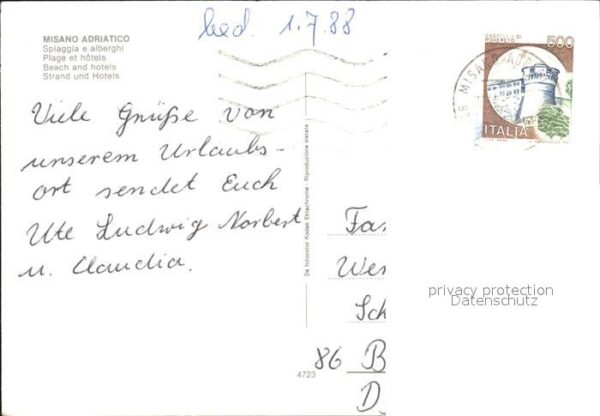 bed. 1.7.88
MISANO ADRIATICO
Spiaggia e alberghi
Plage et hôtels
Beach and hotels
Strand und Hotels
CASTELLO DI
ROVERETO
500
ITALIA
Viele Grüße von
unserem Urlaubs-
ort sendet Euch
Ute Ludwig Norbert
u. Claudia.
De fotocolor Kodak Ektachrome - Riproduzione vietata
4723
Fa
Wer
Sch
86 B
D
privacy protection
Datenschutz